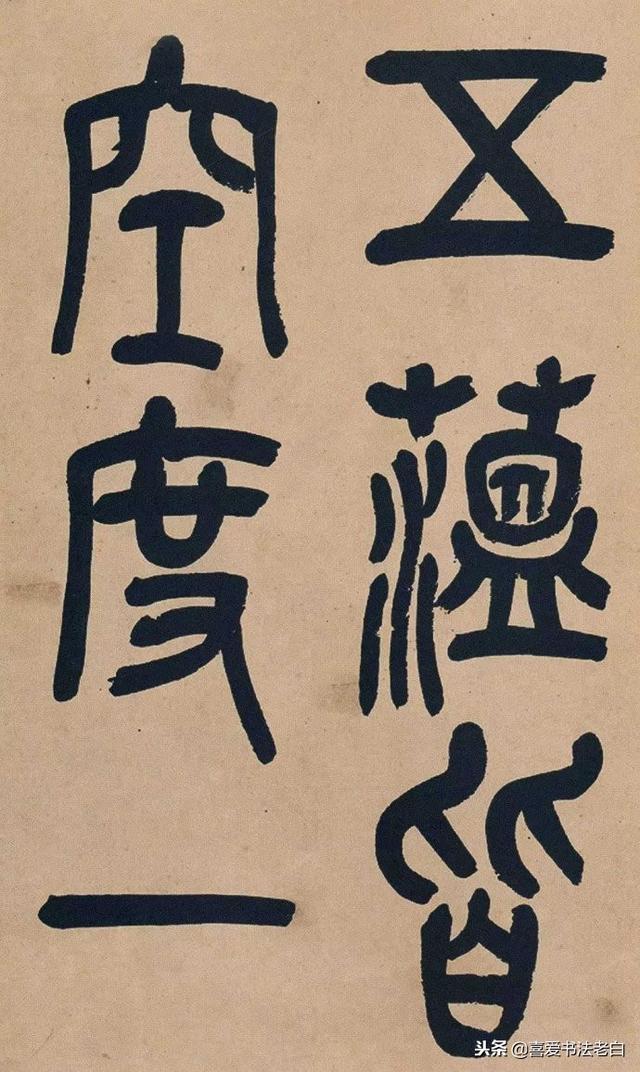 五蘊皆
空度一
头条 @喜爱书法老白